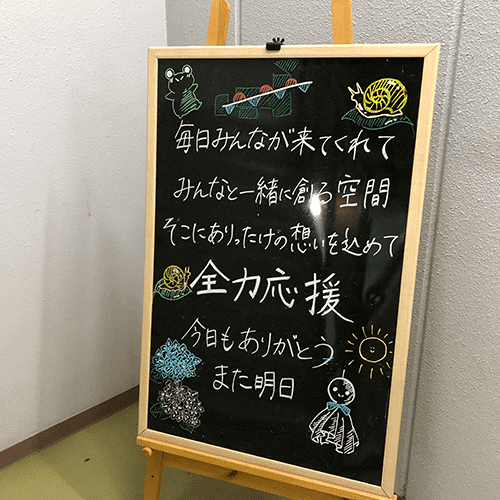 毎日みんなが来てくれて
みんなと一緒に創る空間
そこにありったけの想いを込めて
全力応援
今日もありがとう
また明日